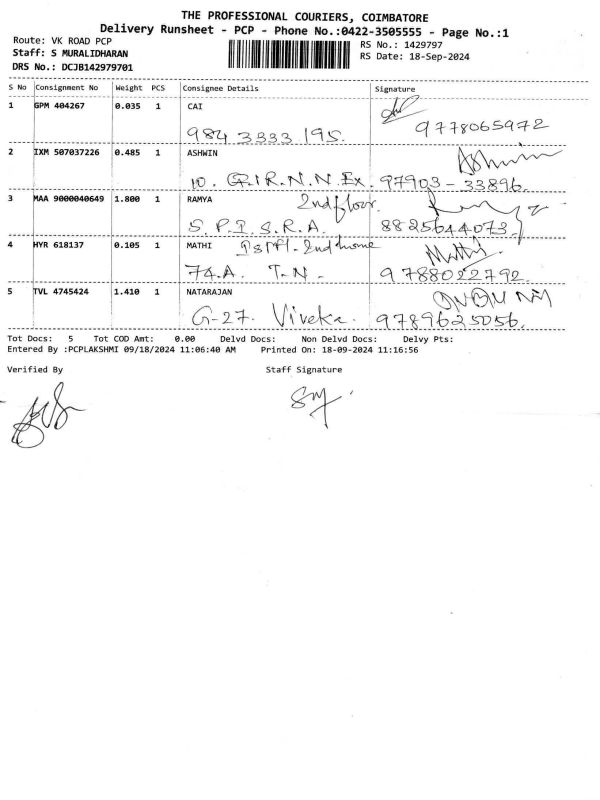 THE PROFESSIONAL COURIERS, COIMBATORE
Delivery Runsheet - PCP - Phone No.:0422-3505555 - Page No.:1
Route: VK ROAD PCP
RS No.: 1429797
Staff: S MURALIDHARAN
RS Date: 18-Sep-2024
DRS No.: DCJB142979701
S No Consignment No Weight PCS Consignee Details Signature
1 GPM 404267 0.035 1 CAI
984 3333 195. 9778065972
2 IXM 507037226 0.485 1 ASHWIN Ashwin
10. G.I.R.N.N. Ex. 97903-33896.
3 MAA 9000040649 1.800 1 RAMYA 2nd floor.
S.P.I.S.R.A. 8825644073.
4 HYR 618137 0.105 1 MATHI 2nd home Mathi
74.A. T.N. 9788022792
5 TVL 4745424 1.410 1 NATARAJAN
G-27. Viveka. 9789625056.
Tot Docs: 5 Tot COD Amt: 0.00 Delvd Docs: Non Delvd Docs: Delvy Pts:
Entered By :PCPLAKSHMI 09/18/2024 11:06:40 AM Printed On: 18-09-2024 11:16:56
Verified By Staff Signature